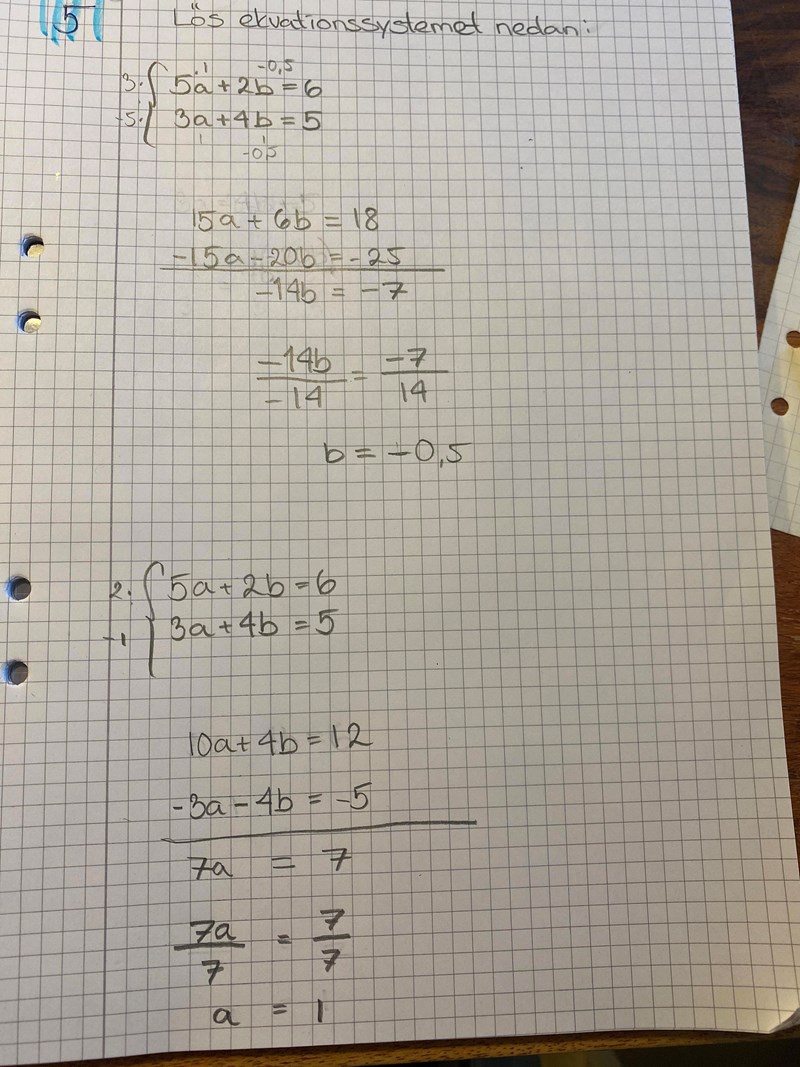 5 Lös ekvationssystemet nedan:
1 -0,5
3· { 5a + 2b = 6
-5· { 3a + 4b = 5
1 -0,5
15a + 6b = 18
-15a - 20b = -25
-14b = -7
-14b/-14 = -7/14
b = -0,5
2· { 5a + 2b = 6
-1 { 3a + 4b = 5
10a + 4b = 12
-3a - 4b = -5
7a = 7
7a/7 = 7/7
a = 1